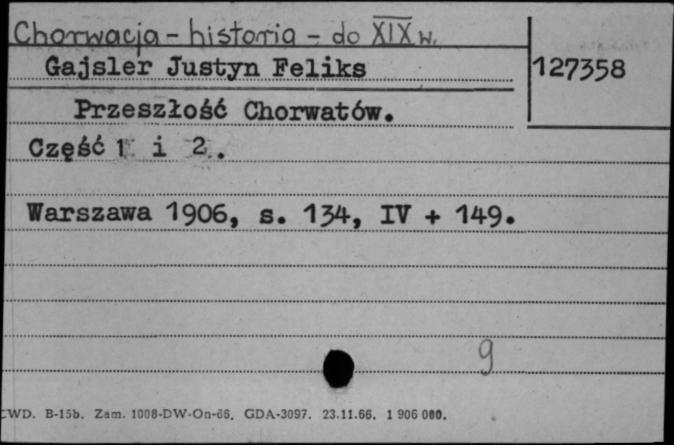 Chorwacja - historia - do XIX w.
Gajsler Justyn Feliks
127358
Przeszłość Chorwatów.
Część 1 i 2.
Warszawa 1906, s. 134, IV + 149.
9
CWD. B-15b. Zam. 1008-DW-On-66. GDA-3097. 23.11.66. 1 906 000.